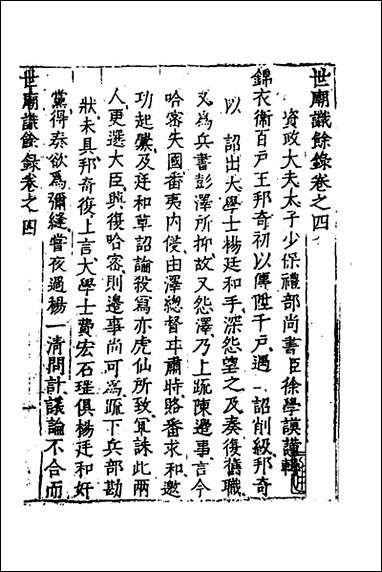 世廟識餘錄卷之四
資政大夫太子少保禮部尚書臣徐學謨謹輯
錦衣衛百戶王邦奇初以傳陞千戶遇 詔削級邦奇
以 詔出大學士楊廷和手深怨望之及奏復舊職
又為兵書彭澤所抑故又怨澤乃上疏陳邊事言今
哈密失國番夷內侵由澤總督甘肅時賂番求和邀
功起釁及廷和草詔論殺寫亦虎仙所致冝誅此兩
人更選大臣興復哈密則邊事尚可為疏下兵部勘
狀未具邦奇復上言大學士費宏石珤俱楊廷和奸
黨得奏欲為彌縫嘗夜過楊一清問計議論不合而
世廟識餘錄卷之四
一